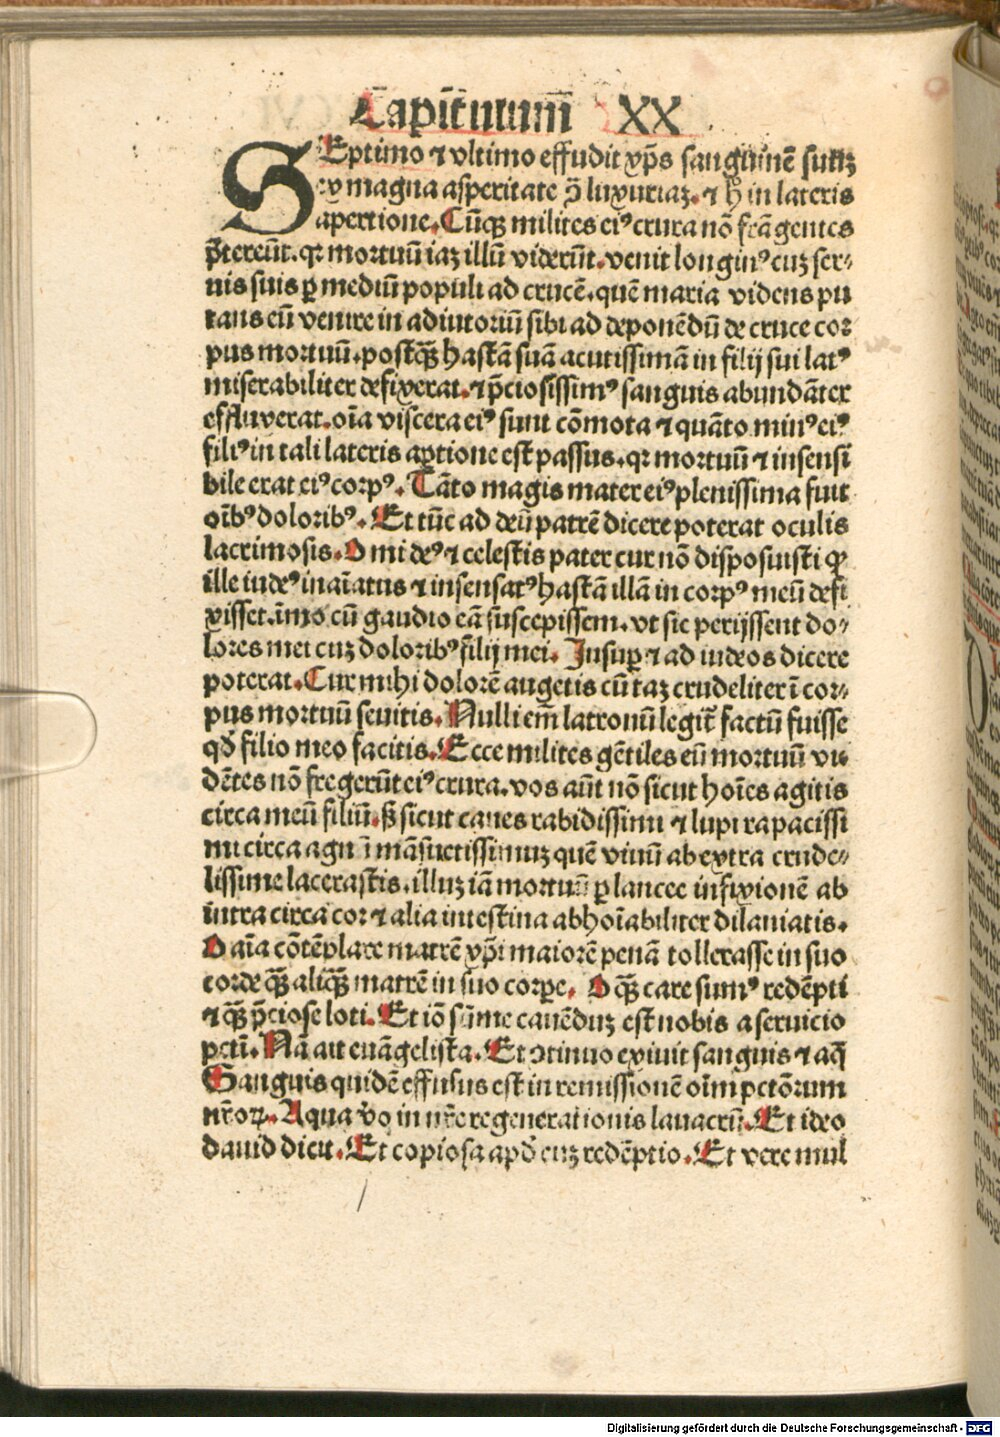 Capitulum XX
SEptimo ⁊ vltimo effudit xp̄s sanguinē suuz
ex magna asperitate ꝯ̄ luxuriaz. ⁊ h̊ in lateris
apertione. Cūqꝫ milites eiꝰ crura nō frāgentes
p̄tereūt. qꝛ mortuū iaz illū viderūt. venit longinꝰ cuz ser-
uis suis ꝑ mediū populi ad crucē. quē maria videns pu
tans eū venire in adiutoriū sibi ad deponēdū de cruce cor
pus mortuū. postqꝫ̄ hastā suā acutissimā in filij sui latꝰ
miserabiliter defixerat. ⁊ p̄ciosissimꝰ sanguis abundāter
effluxerat. oīa viscera eiꝰ sunt cōmota ⁊ quāto minꝰ eiꝰ
filiꝰ in tali lateris aꝑtione est passus. qꝛ mortuū ⁊ insensi
bile erat eiꝰ corpꝰ. Tāto magis mater eiꝰ plenissima fuit
oībꝰ doloribꝰ. Et tūc ad deū patrē dicere poterat oculis
lacrimosis. O mi deꝰ ⁊ celestis pater cur nō disposuisti ꝙ
ille iudeꝰ inaīatus ⁊ insensatꝰ hastā illā in corpꝰ meū defi
xisset. īmo cū gaudio eā suscepissem. vt sic perijssent do-
lores mei cuz doloribꝰ filij mei. Insuꝑ ⁊ ad iudeos dicere
poterat. Cur mihi dolorē augetis cū taz crudeliter ī cor-
pus mortuū seuitis. Nulli em̄ latronū legit̄ factū fuisse
qd̄ filio meo facitis. Ecce milites gētiles eū mortuū vi-
dētes nō fregerūt eiꝰ crura. vos aūt nō sicut hoīes agitis
circa meū filiū. sꝫ sicut canes rabidissimi ⁊ lupi rapacissi
mi circa agnū māsuetissimuz quē viuū ab extra crude-
lissime lacerastis. illuz iā mortuū ꝑ lancee infixionē ab
intra circa cor ⁊ alia intestina abhoīabiliter dilaniatis.
O aīa cōtēplare matrē xp̄i maiorē penā tollerasse in suo
corde qꝫ̄ aliqꝫ̄ matrē in suo corpe. O qꝫ̄ care sumꝰ redēpti
⁊ qꝫ̄ p̄ciose loti. Et iō sūme cauēduz est nobis a seruicio
pcti. Nā ait euāgelista. Et ꝯtinuo exiuit sanguis ⁊ aq̄
Sanguis quidē effusus est in remissionē oīm pctōrum
nr̄orꝫ. Aqua v̄o in nr̄e regenerationis lauacrū. Et ideo
dauid dicit. Et copiosa apd̄ euz redēptio. Et vere mul
Digitalisierung gefördert durch die Deutsche Forschungsgemeinschaft - DFG